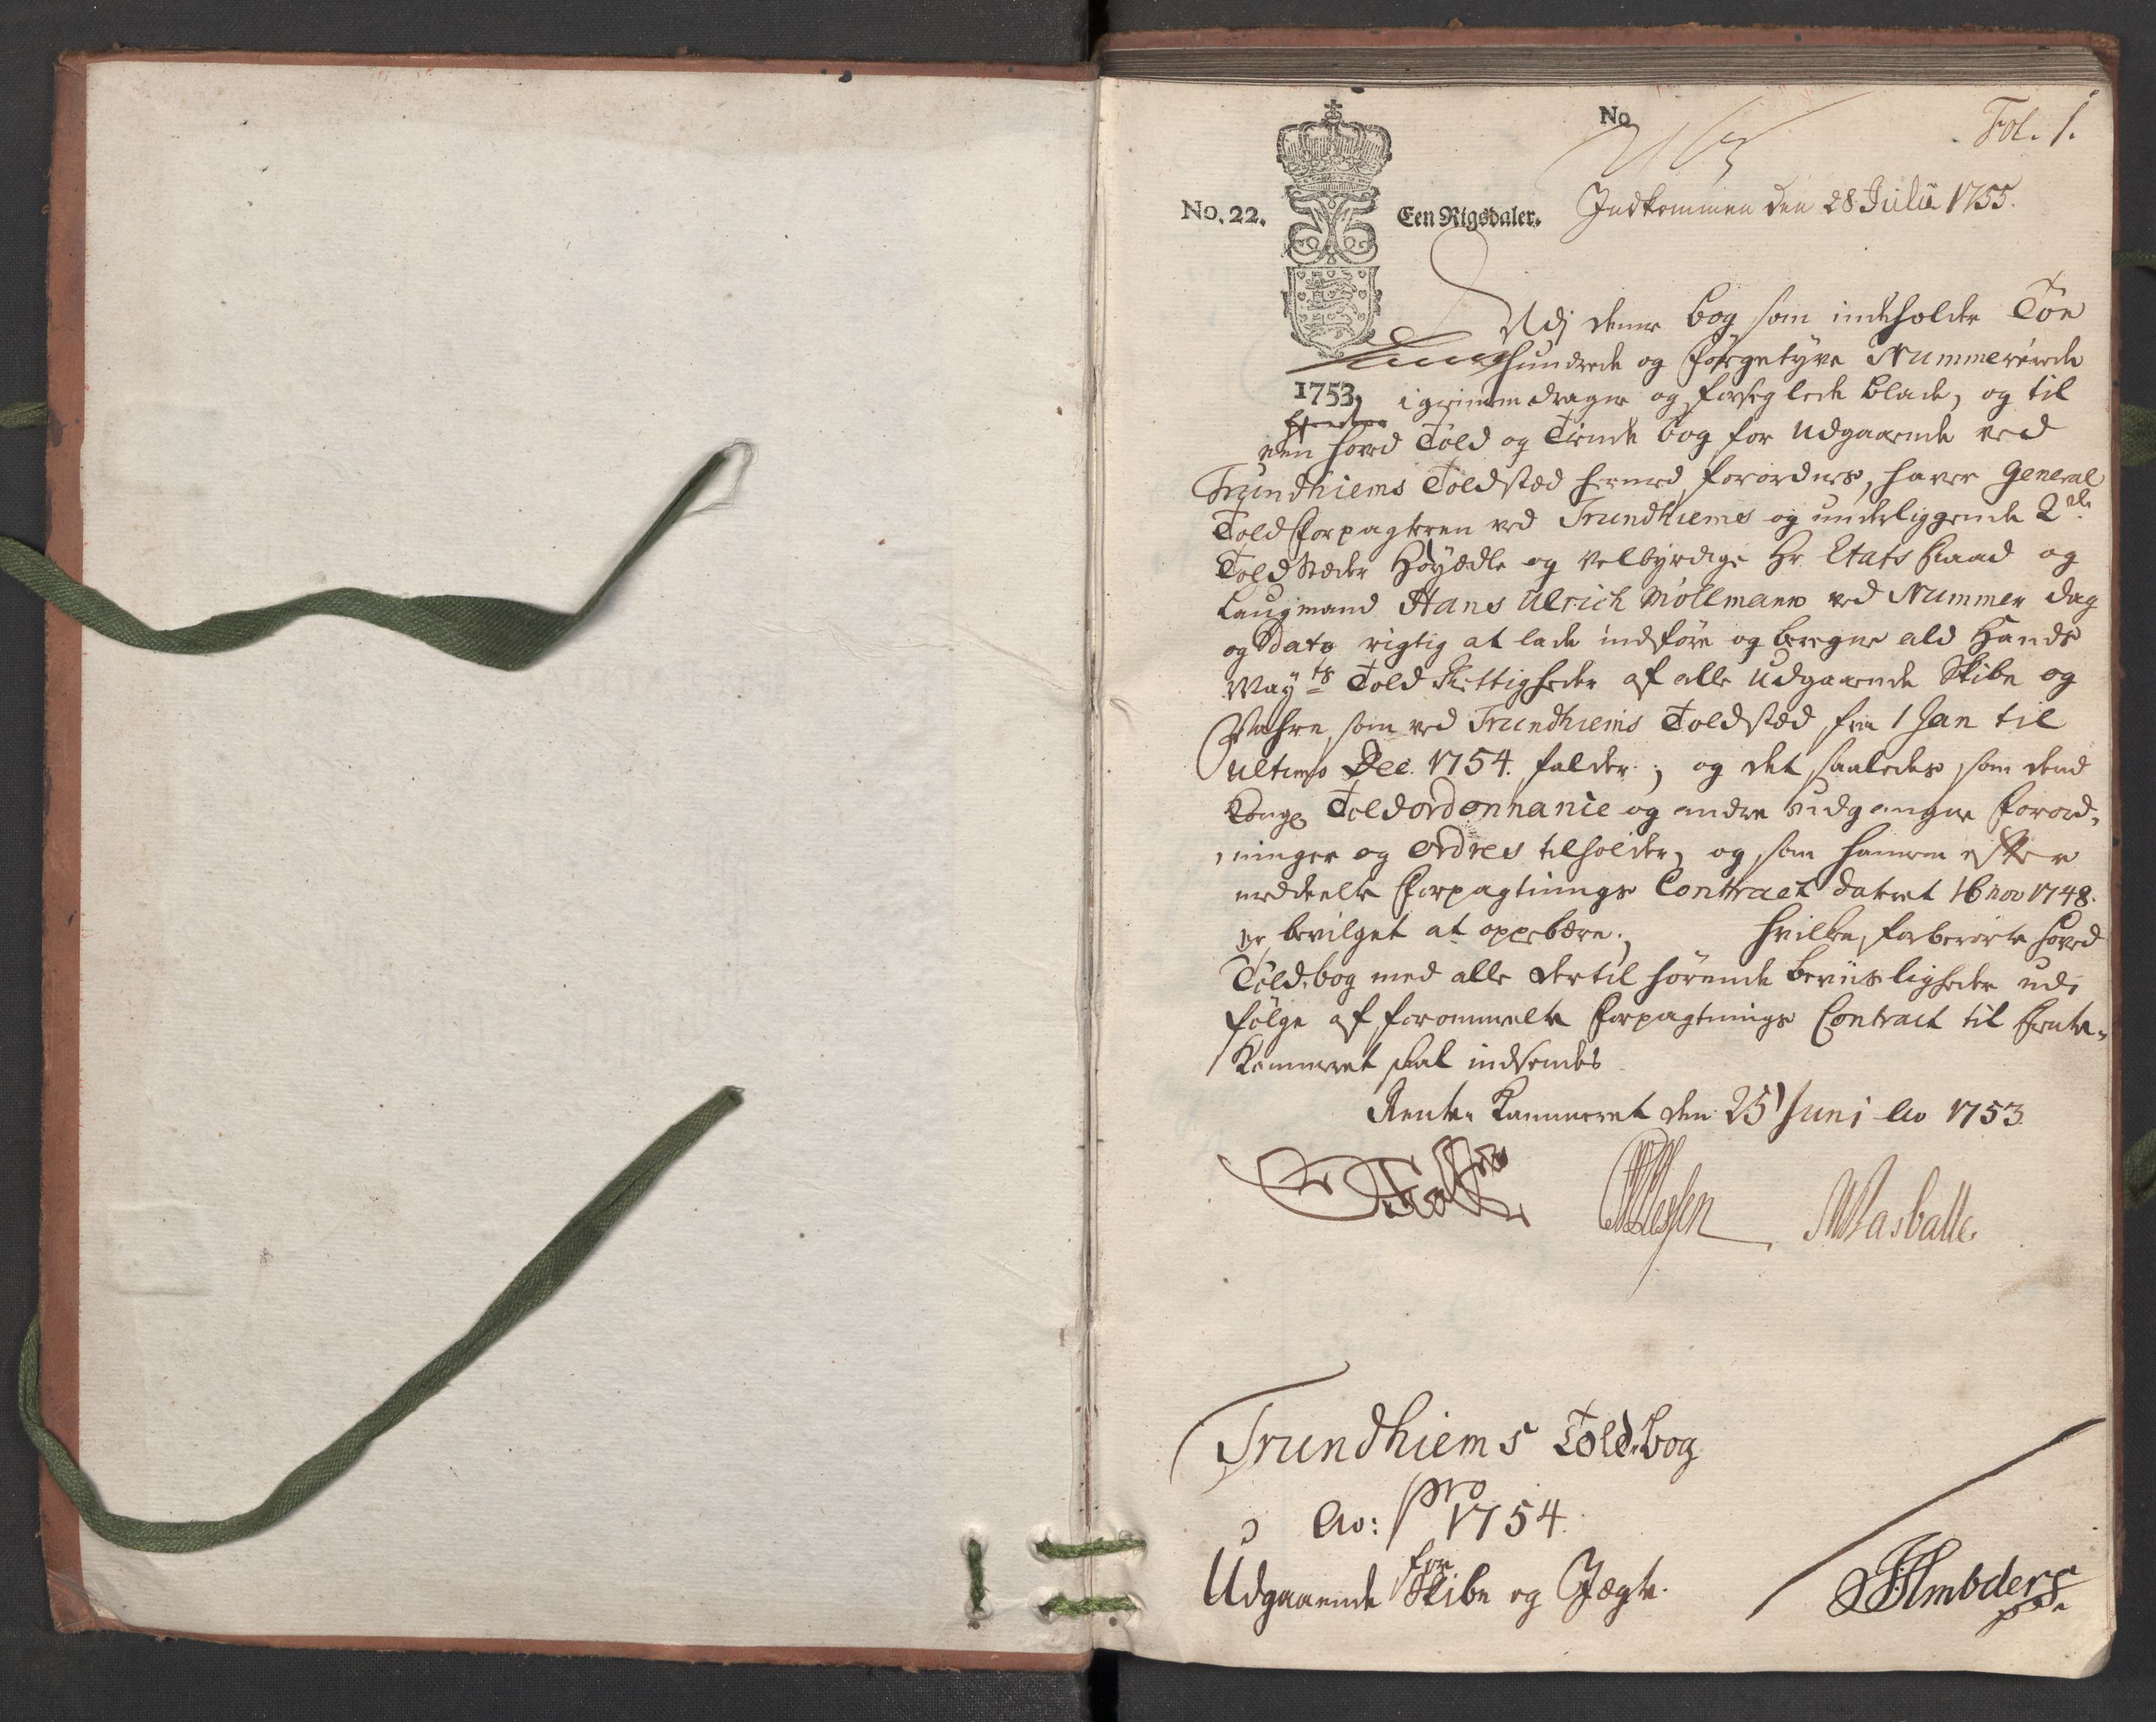 No
Fol. 1.
No. 22.
Een Rigsdaler.
Indkommen den 28 Julii 1755.
Udj denne bog som indeholder Toe
hundrede og förgetyve Nummererede
1753,
igiennemdragne og forseglede blade, og til
een hoved Told og Tiende bog for udgaaende ved
Trundhiems Toldstæd hermed forordnes, haver General
Told Forpagteren ved Trundhiems og underliggende 2de
Told Stæder Höyædle og Velbyrdige Hr Etats Raad og
Laugmand Hans Ulrich Möllmann ved Nummer dag
og Dato rigtig at lade indföre og beregne ald Hands
Mayts Told Rettigheder af alle udgaaende Skibe og
Vahre, som ved Trundhiems Toldstæd fra 1 Jan til
ultimo Dec. 1754. falder; og det saaledes som dend
Kongl Toldordonnance og andre udgangne Forord-
ninger og Ordres tilholder, og som hannem efter
meddeelte Forpagtnings Contract dateret 16 nov 1748.
er bevilget at oppebære; hvilken forberörte hoved
Toldbog med alle dertil hörende beviisligheder udi
fölge af forommelte Forpagtnings Contract til Rente-
Kammeret skal indsendes
Rente Kammeret den 25 Juni Ao 1753.
Trundhiems Toldbog
pro
Ao: 1754.
for
Udgaaende Skibe og Jægte.